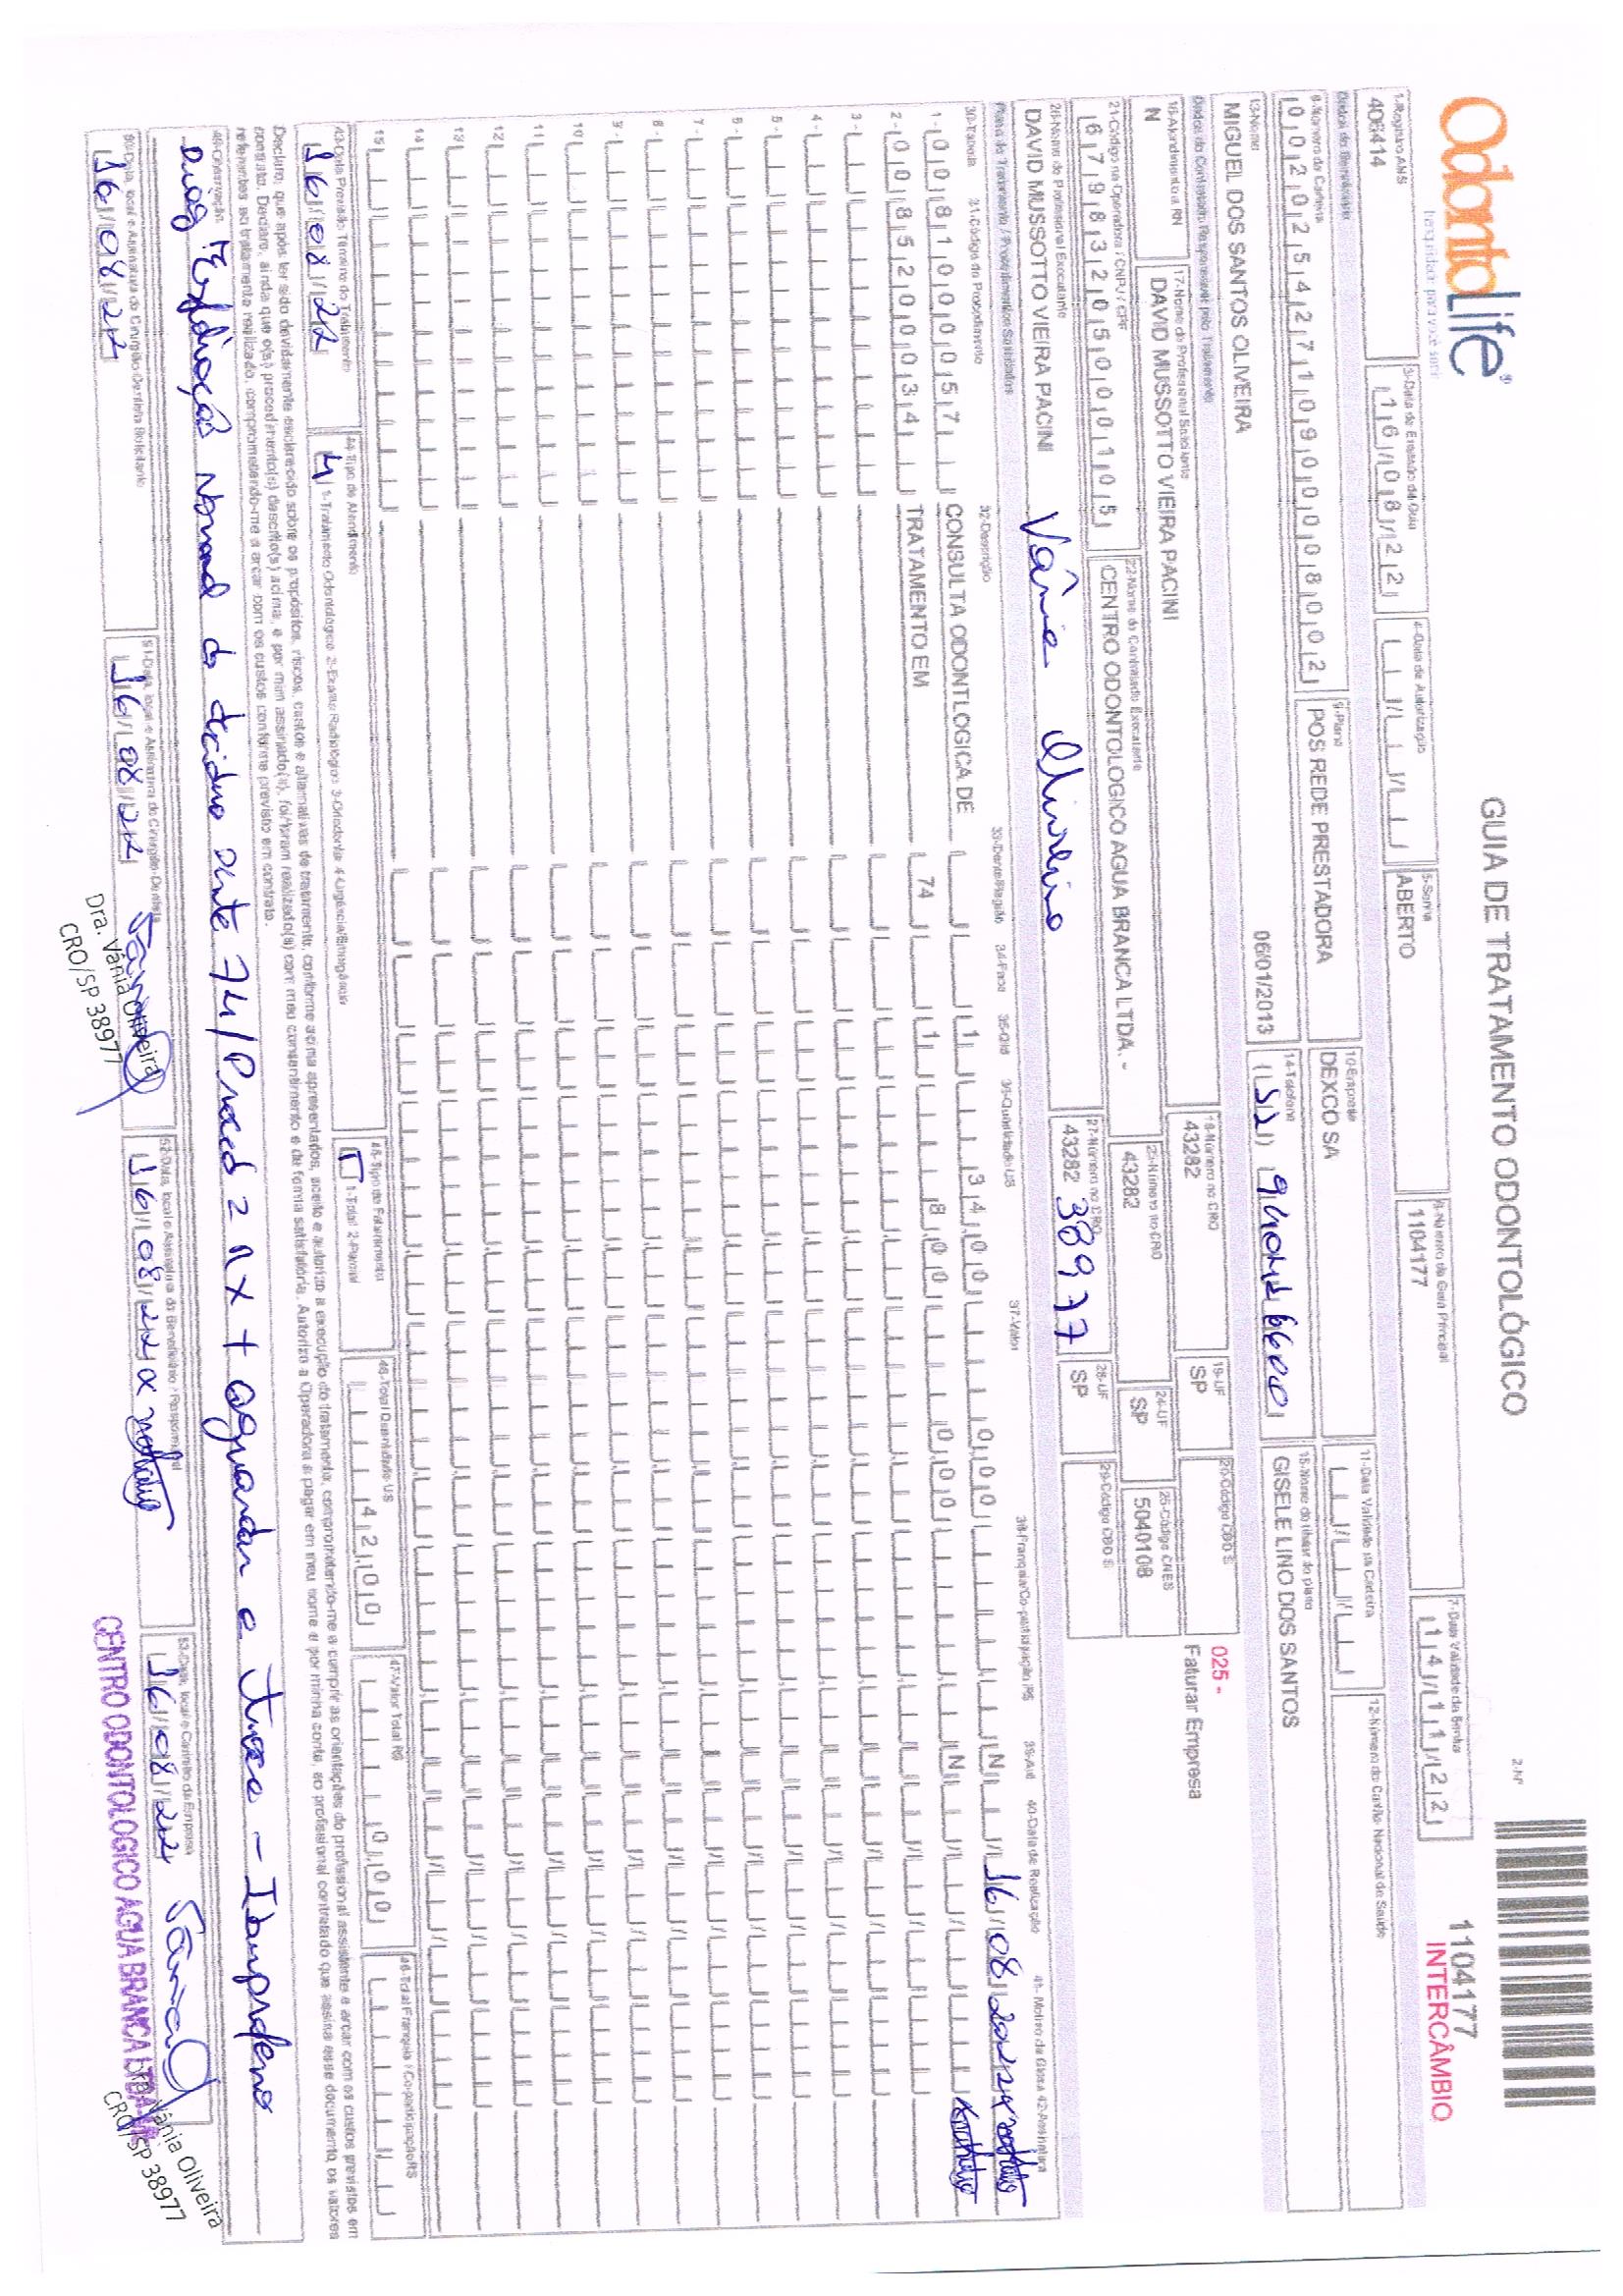 OdontoLife®
GUIA DE TRATAMENTO ODONTOLÓGICO
2-Nº
1104177
INTERCÂMBIO
1-Registro ANS
406414
3-Data de Emissão da Guia
16/08/22
4-Data de Autorização
5-Senha
ABERTO
6-Número da Guia Principal
1104177
7-Data Validade da Senha
14/11/22
Dados do Beneficiário
8-Número da Carteira
00202542710900008002
9-Plano
POS REDE PRESTADORA
10-Empresa
DEXCO SA
11-Data Validade da Carteira
12-Número do Cartão Nacional de Saúde
13-Nome
MIGUEL DOS SANTOS OLIVEIRA
06/01/2013
14-Telefone
15-Nome do titular do plano
GISELE LINO DOS SANTOS
Dados do Contratado Responsável pelo Tratamento
16-Atendimento a RN
N
17-Nome do Profissional Solicitante
DAVID MUSSOTTO VIEIRA PACINI
18-Número no CRO
43282
19-UF
SP
20-Código CBO S
025 -
Faturar Empresa
21-Código na Operadora / CNPJ / CPF
67983205000105
22-Nome do Contratado Executante
CENTRO ODONTOLOGICO AGUA BRANCA LTDA. -
23-Número no CRO
43282
24-UF
SP
25-Código CNES
5040108
26-Nome do Profissional Executante
DAVID MUSSOTTO VIEIRA PACINI Vânia Oliveira
27-Número no CRO
43282 38977
28-UF
SP
29-Código CBO S
Plano de Tratamento / Procedimentos Solicitados
30-Tabela 31-Código do Procedimento 32-Descrição 33-Dente/Região 34-Face 35-Qtd 36-Quantidade US 37-Valor 38-Franquia/Co-participação R$ 39-Aut 40-Data de Realização 41-Motivo da Glosa 42-Assinatura
1- 00 81000057 CONSULTA ODONTILOGICA DE 1 34,00 0,00 N 16/08/2022
2- 00 85200034 TRATAMENTO EM 74 1 8,00 0,00 N
3-
4-
5-
6-
7-
8-
9-
10
11
12
13
14
15
43-Data Prevista Término do Tratamento
16/08/22
44-Tipo de Atendimento
4 1-Tratamento Odontológico 2-Exame Radiológico 3-Ortodontia 4-Urgência/Emergência
45-Tipo de Faturamento
1-Total 2-Parcial
46-Total Quantidade US
42,00
47-Valor Total R$
0,00
48-Total Franquia / Co-participação R$
Declaro, que após ter sido devidamente esclarecido sobre os propósitos, riscos, custos e alternativas de tratamento, conforme acima apresentados, aceito e autorizo a execução do tratamento, comprometendo-me a cumprir as orientações do profissional assistente e arcar com os custos previstos em
contrato. Declaro, ainda que o(s) procedimento(s) descrito(s) acima, e por mim assinado(s), foi/foram realizado(s) com meu consentimento e de forma satisfatória. Autorizo a Operadora a pagar em meu nome e por minha conta, ao profissional contratado que assina esse documento, os valores
referentes ao tratamento realizado, comprometendo-me a arcar com os custos conforme previsto em contrato.
49-Observação
Diag Esfoliação Normal do decíduo dente 74/Proced 2 RX + aguardar a troca - Ibuprofeno
50-Data, local e Assinatura do Cirurgião-Dentista Solicitante
16/08/22
51-Data, local e Assinatura do Cirurgião-Dentista
16/08/22
52-Data, local e Assinatura do Beneficiário / Responsável
16/08/22
53-Data, local e Carimbo da Empresa
16/08/22
Dra. Vânia Oliveira
CRO/SP 38977
CENTRO ODONTOLOGICO AGUA BRANCA LTDA
Dra. Vânia Oliveira
CRO/SP 38977